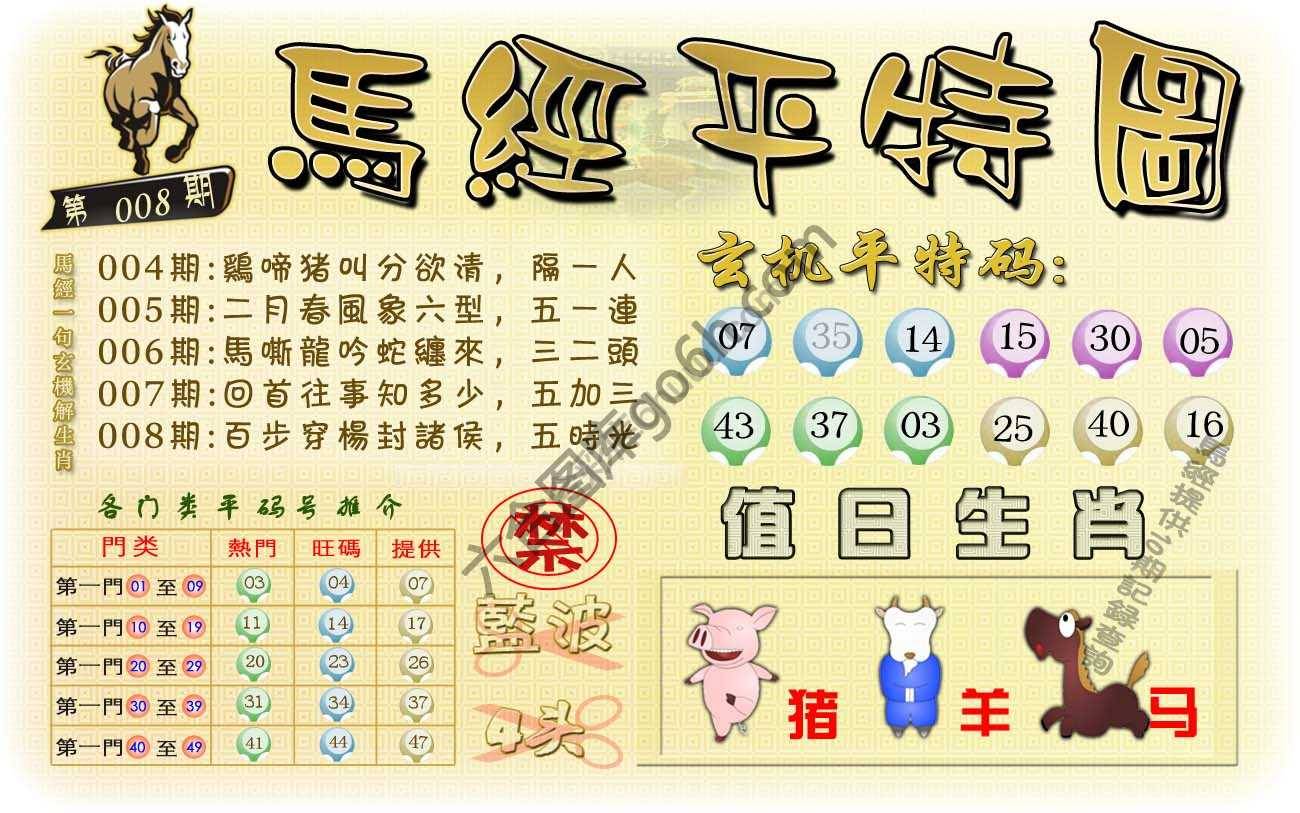 馬經平特圖
第 008 期
馬經一句玄機解生肖
004期:鷄啼猪叫分欲清，隔一人
005期:二月春風象六型，五一連
006期:馬嘶龍吟蛇纏來，三二頭
007期:回首往事知多少，五加三
008期:百步穿楊封諸侯，五時光
玄机平特码:
07 35 14 15 30 05
43 37 03 25 40 16
各门类平码号推介
門类 熱門 旺碼 提供
第一門 01 至 09 03 04 07
第一門 10 至 19 11 14 17
第一門 20 至 29 20 23 26
第一門 30 至 39 31 34 37
第一門 40 至 49 41 44 47
禁
藍波
4头
值日生肖
猪 羊 马
六合图库go6h.com
馬經提供16期記録查詢